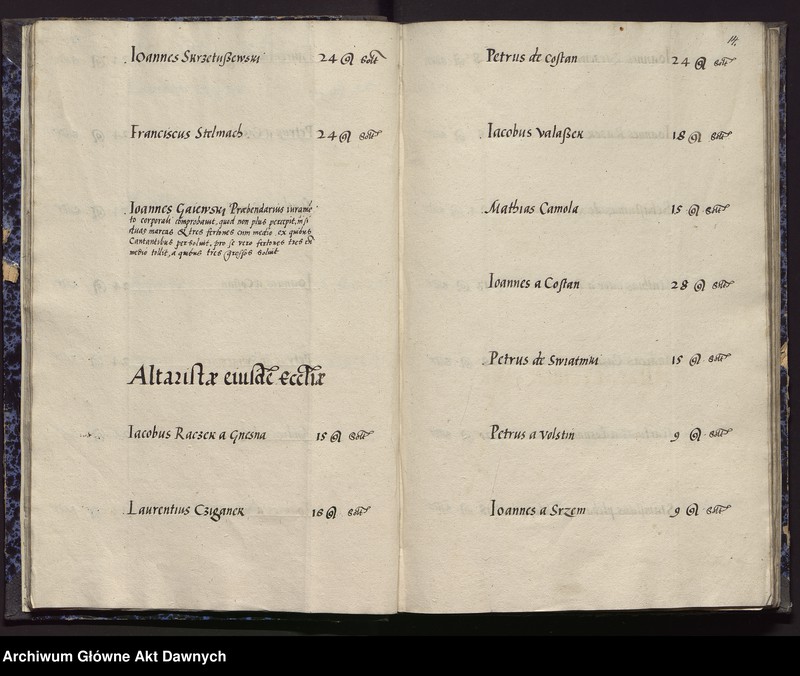 Ioannes Skrzetußewski 24 g solt
Franciscus Stelmach 24 g solt
Ioannes Gaiewski Præbendarius iuramē
to corporali cōprobauit, quod non plus percepit, nisi
duas marcas & tres fertones cum medio ex quibus
Cantantibus persoluit, pro se vero fertones tres cū
medio tollit, a quibus tres grossos soluit
Altaristæ eiusdē Ecctiæ
Iacobus Raczek a Gnesna 15 g solt
Laurentius Cziganek 18 g solt
14.
Petrus de Costan 24 g solt
Iacobus Valaßek 18 g solt
Mathias Camola 15 g solt
Ioannes a Costan 28 g solt
Petrus de Swiatniki 15 g solt
Petrus a Volstin 9 g solt
Ioannes a Srzem 9 g solt
Archiwum Główne Akt Dawnych